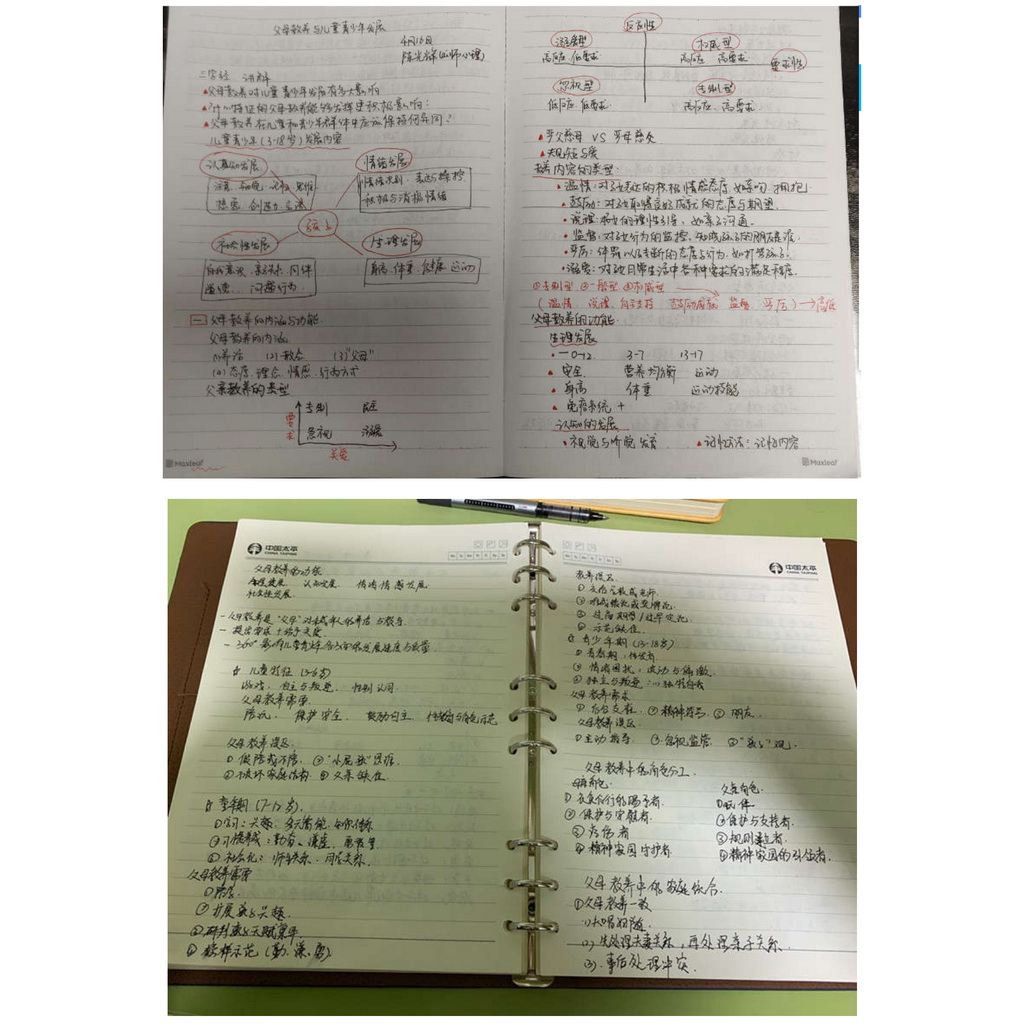 父母教养与儿童青少年发展
4月16日
三字经 讲解
父母教养对儿童青少年发展有多大影响
什么特征的父母教养能够发挥更积极影响?
父母教养在儿童和青少年群体中应该保持何异同?
儿童青少年(3-18岁)发展内容
认知发展
情绪发展
注意 记忆 思维
想象 创造力
情绪识别 表达与
积极与消极情绪
孩子
社会性发展
生理发展
自我意识 亲子关系 同伴
道德... 问题行为
身高 体重 健康 运动
一 父母教养的内涵与功能
父母教养的内涵
(1)养活 (2)教会 (3)"父母"
(4)态度 理念 情感 行为方式
父亲教养的类型
专制
要求
忽视 溺爱
关爱
Maxleaf
反应性
溺爱型
高反应 低要求
权威型
高反应 高要求
要求性
忽视型
低反应 低要求
专制型
高反应 高要求
严父慈母 VS 严母慈父
规矩与爱
教养内容的类型:
温情:对孩子表达的积极情感态度,如亲吻、拥抱
鼓励:对孩子取得良好成就的态度与期望
说理:积极的理性引导,如亲子沟通
监督:对孩子行为的监控,知晓孩子的朋友是谁
严厉:体罚以及专断的态度与行为,如打骂孩子
溺爱:对孩子日常生活中各种要求的满足程度
①专制型 ②一般型 ③权威型
(温情 说理 自主支持 鼓励成就 监督 严厉) → 高低
父母教养的功能
生理发展
0-12 3-7 13-17
安全 营养均衡 运动
身高 体重 运动技能
免疫系统 +
认知的发展
视觉与听觉发育 记忆方法:记忆内容
Maxleaf
中国太平
CHINA TAIPING
父母教养的功能
生理发展 认知发展 情绪情感发展
社会性发展
父母教养是"父母"对未成年人的养活与教导
提出要求+给予关爱
360°影响儿童青少年各方面的发展速度与质量
儿童特征 (3-6岁)
游戏、自主与叛逆 性别认同
父母教养需要
陪玩、保护安全 鼓励自主
父母教养误区
① 假陪或不陪 ②
③ 破坏家庭 ④ 父亲缺位
童年期 (7-12岁)
①学习:兴趣、多元智能
②习惯养成:勤奋、谦虚
③社会化:师生关系、同伴关系
父母教养需要
①陪学
②扩展孩子兴趣
③研判孩子天赋
④榜样示范 (勤、谦、
中国太平
CHINA TAIPING
教养误区
① 父母当教师
③ 过高期望/过早定论
④ 示范缺位
青少年期 (13-18岁)
① 青春期:性发育
② 情绪困扰:波动与偏激
③ 独立与叛逆
父母教养需求
① 后台支柱 ② 精神导师 ③ 朋友
父母教养误区
① 主动指导 ② 忽视监管 ③
父母教养中的角色分工
母亲角色:
① 衣食住行的赐予者
② 保护与守护者
③ 疗伤者
④ 精神家园守护者
父亲角色
① 玩伴
② 保护与支持者
③ 规则建立者
④ 精神家园的引领者
父母教养中的家庭
① 父母教养一致
(1) 夫唱妇随
(2) 先处理夫妻关系,再处理亲子关系
(3) 事后处理冲突